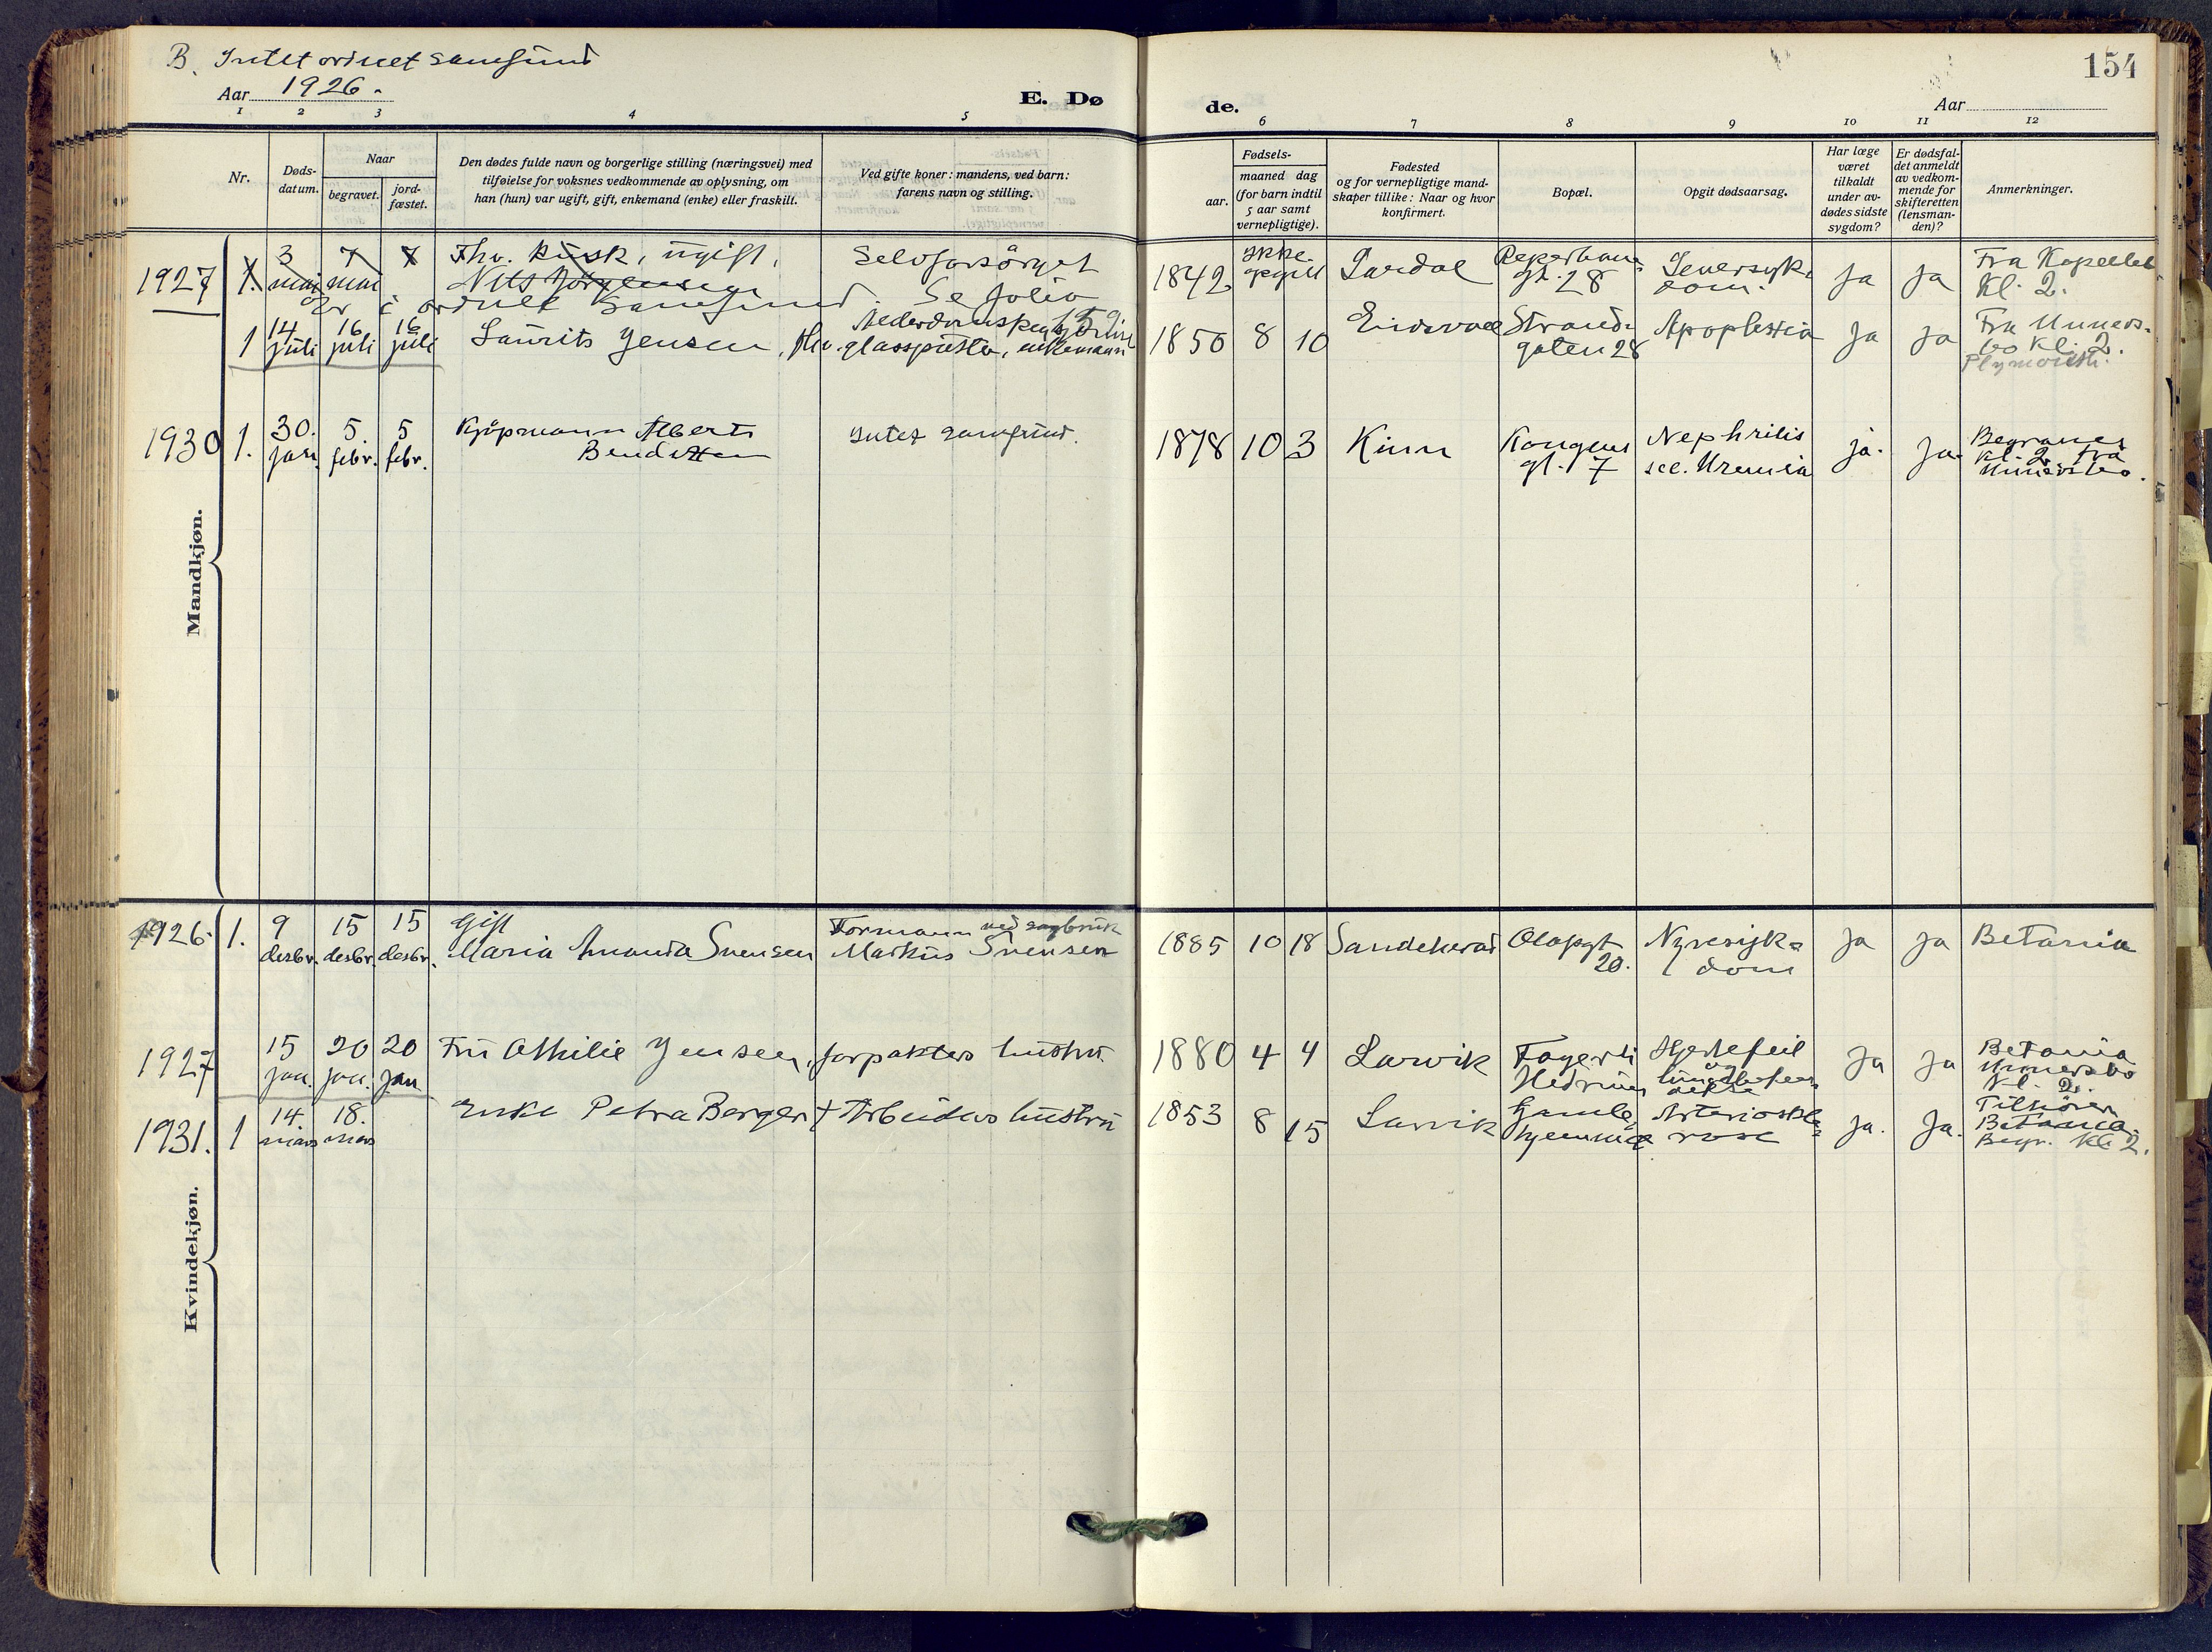 B. Intet ordnet samfund
Aar 1926.
E. Dø
de.
154
Aar
1 2 3 4 5 6 7 8 9 10 11 12
Nr.
Døds-
datum.
Naar
begravet.
jord-
fæstet.
Den dødes fulde navn og borgerlige stilling (næringsvei) med
tilføielse for voksnes vedkommende av oplysning, om
han (hun) var ugift, gift, enkemand (enke) eller fraskilt.
Ved gifte koner: mandens, ved barn:
farens navn og stilling.
Fødsels-
aar.
maaned dag
(for barn indtil
5 aar samt
vernepligtige).
Fødested
og for vernepligtige mand-
skaper tillike: Naar og hvor
konfirmert.
Bopæl.
Opgit dødsaarsag.
Har læge
været
tilkaldt
under av-
dødes sidste
sygdom?
Er dødsfal-
det anmeldt
av vedkom-
mende for
skifteretten
(lensman-
den)?
Anmerkninger.
Mandkjøn.
1927 1. 3 mai 7 mai 7
Fhv. kusk, ugift,
Nils Jörgensen
Selvforsörget
1842 ikke opgitt Lardal Reperbane gt. 28 Leversyk- dom. Ja Ja Fra Kapellet Kl. 2.
Er i ordnet samfund. Se folio 159
1 14 juli 16 juli 16 juli Laurits Jensen, fhv. glasspuster, enkemann
1850 8 10 Eidsvoll Strand- gaten 28 Apoplexia Ja Ja Fra Unners- bo Kl. 2.
Plymouth.
1930 1. 30. jan. 5. febr. 5 febr. Kjøpmann Albert
Bendixen
Intet samfund.
1878 10 3 Kinn Kongens gt. 7 Nephritis sec. Uremia ja. Ja. Begraves Kl. 2 fra Unnersbo.
Kvindekjøn.
1926 1. 9 desbr. 15 desbr. 15 desbr. Gift
Maria Amanda Svensen
Formann ved sagbruk
Markus Svensen
1885 10 18 Sandeherad Olafsgt 20. Nyresyk- dom Ja Ja Betania
1927 15 jan. 20 jan. 20 jan Fru Othilie Jensen, forpakters hustru.
1880 4 4 Larvik Fagerli Hedrum Hjertefeil og Ja Ja Betania Unnersbo Kl. 2.
1931. 1 14. mars 18. mars Enke Petra Berger + Arbeiders hustru
1853 8 15 Larvik Gamle hjemmet Arterioskle- rose Ja. Ja. Tilhörer Betania. Begr. Kl 2.